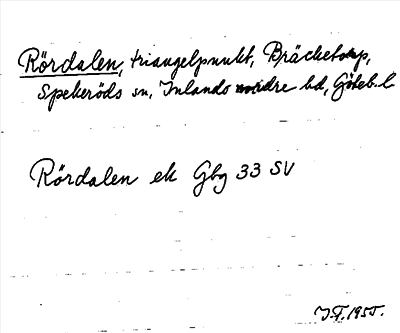 Rördalen, triangelpunkt, Bräcketorp,
Spekeröds sn, Inlands nordre hd, Göteb. l
Rördalen ek Gbg 33 SV
J.F. 1955.